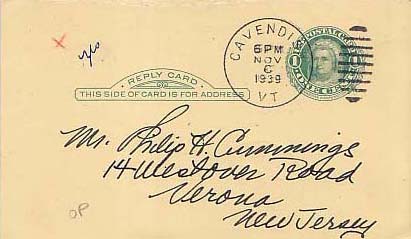 yes
CAVENDISH
6 PM
NOV
6
1939
VT
POSTAL CARD
1 1
ONE CENT
REPLY CARD
THIS SIDE OF CARD IS FOR ADDRESS
Mr. Philip H. Cummings
14 Westover Road
Verona
New Jersey
OP